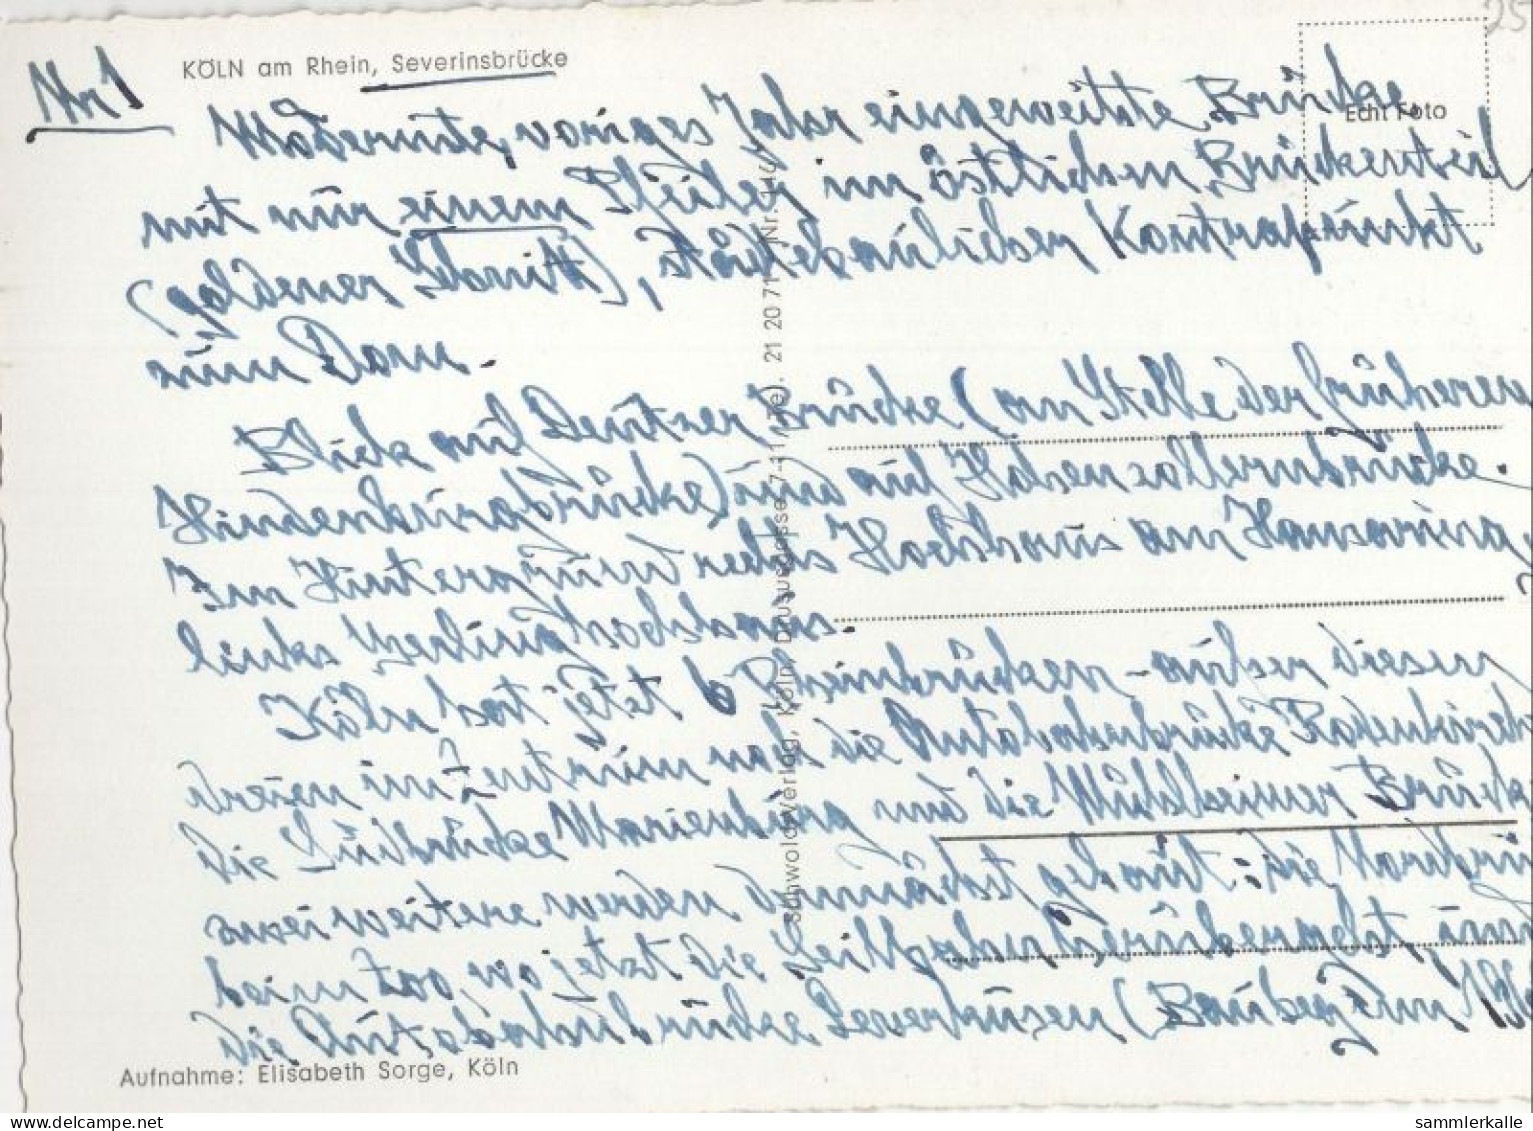 25
Nr 1
KÖLN am Rhein, Severinsbrücke
Echt Foto
Modernste, voriges Jahr eingeweihte Brücke
mit nur einem Pfeiler im östlichen Brückenteil
(goldener Schnitt), städtebaulicher Kontrapunkt
zum Dom.
Blick auf Deutzer Brücke (an Stelle der früheren
Hindenburgbrücke) und auf Hohenzollernbrücke.
Im Hintergrund rechts Hochhaus am Hansaring,
links
Köln hat jetzt 6 Rheinbrücken - außer diesen
dreien im Zentrum noch die Autobahnbrücke Rodenkirchen
die Südbrücke Marienburg und die Mülheimer Brücke
zwei weitere werden demnächst gebaut: die
beim Zoo, wo jetzt die Seilbahn herübergeht,
die Autobahnbrücke Leverkusen (
Schwolde-Verlag, Köln, Drususgasse 7-11, Tel. 21 20 71 Nr.
Aufnahme: Elisabeth Sorge, Köln
sammlerkalle